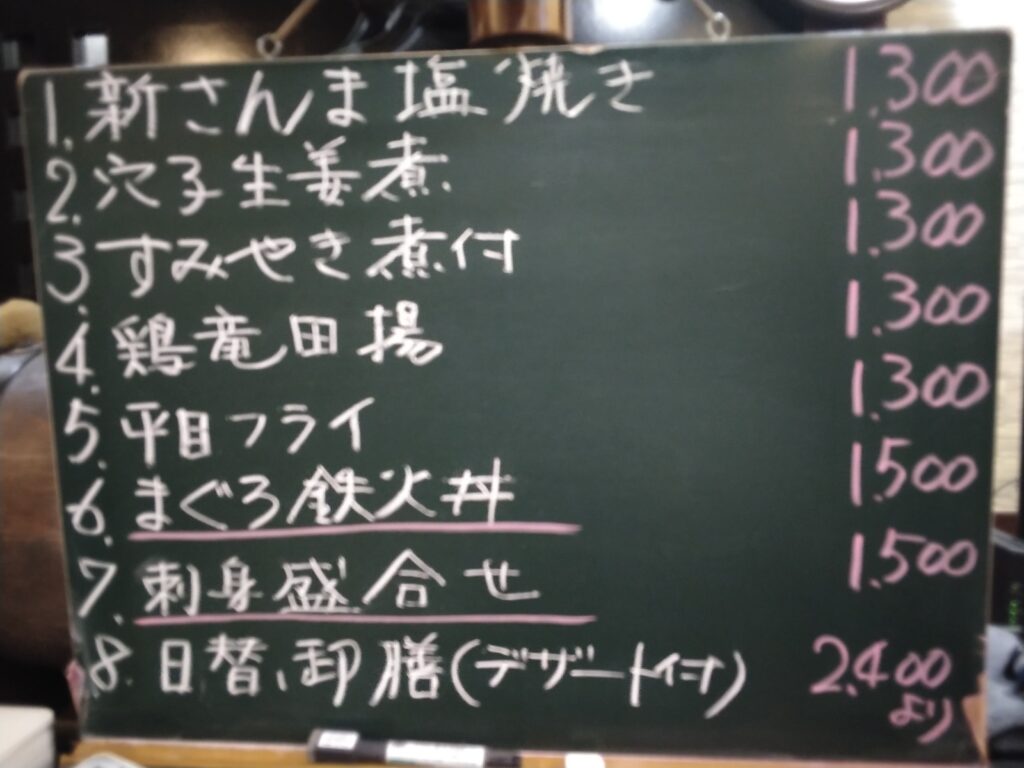 1. 新さんま塩焼き 1.300
2. 穴子生姜煮 1.300
3. すみやき煮付 1.300
4. 鶏竜田揚 1.300
5. 平目フライ 1.300
6. まぐろ鉄火丼 1.500
7. 刺身盛合せ 1.500
8. 日替、卸膳(デザート付) 2.400
より